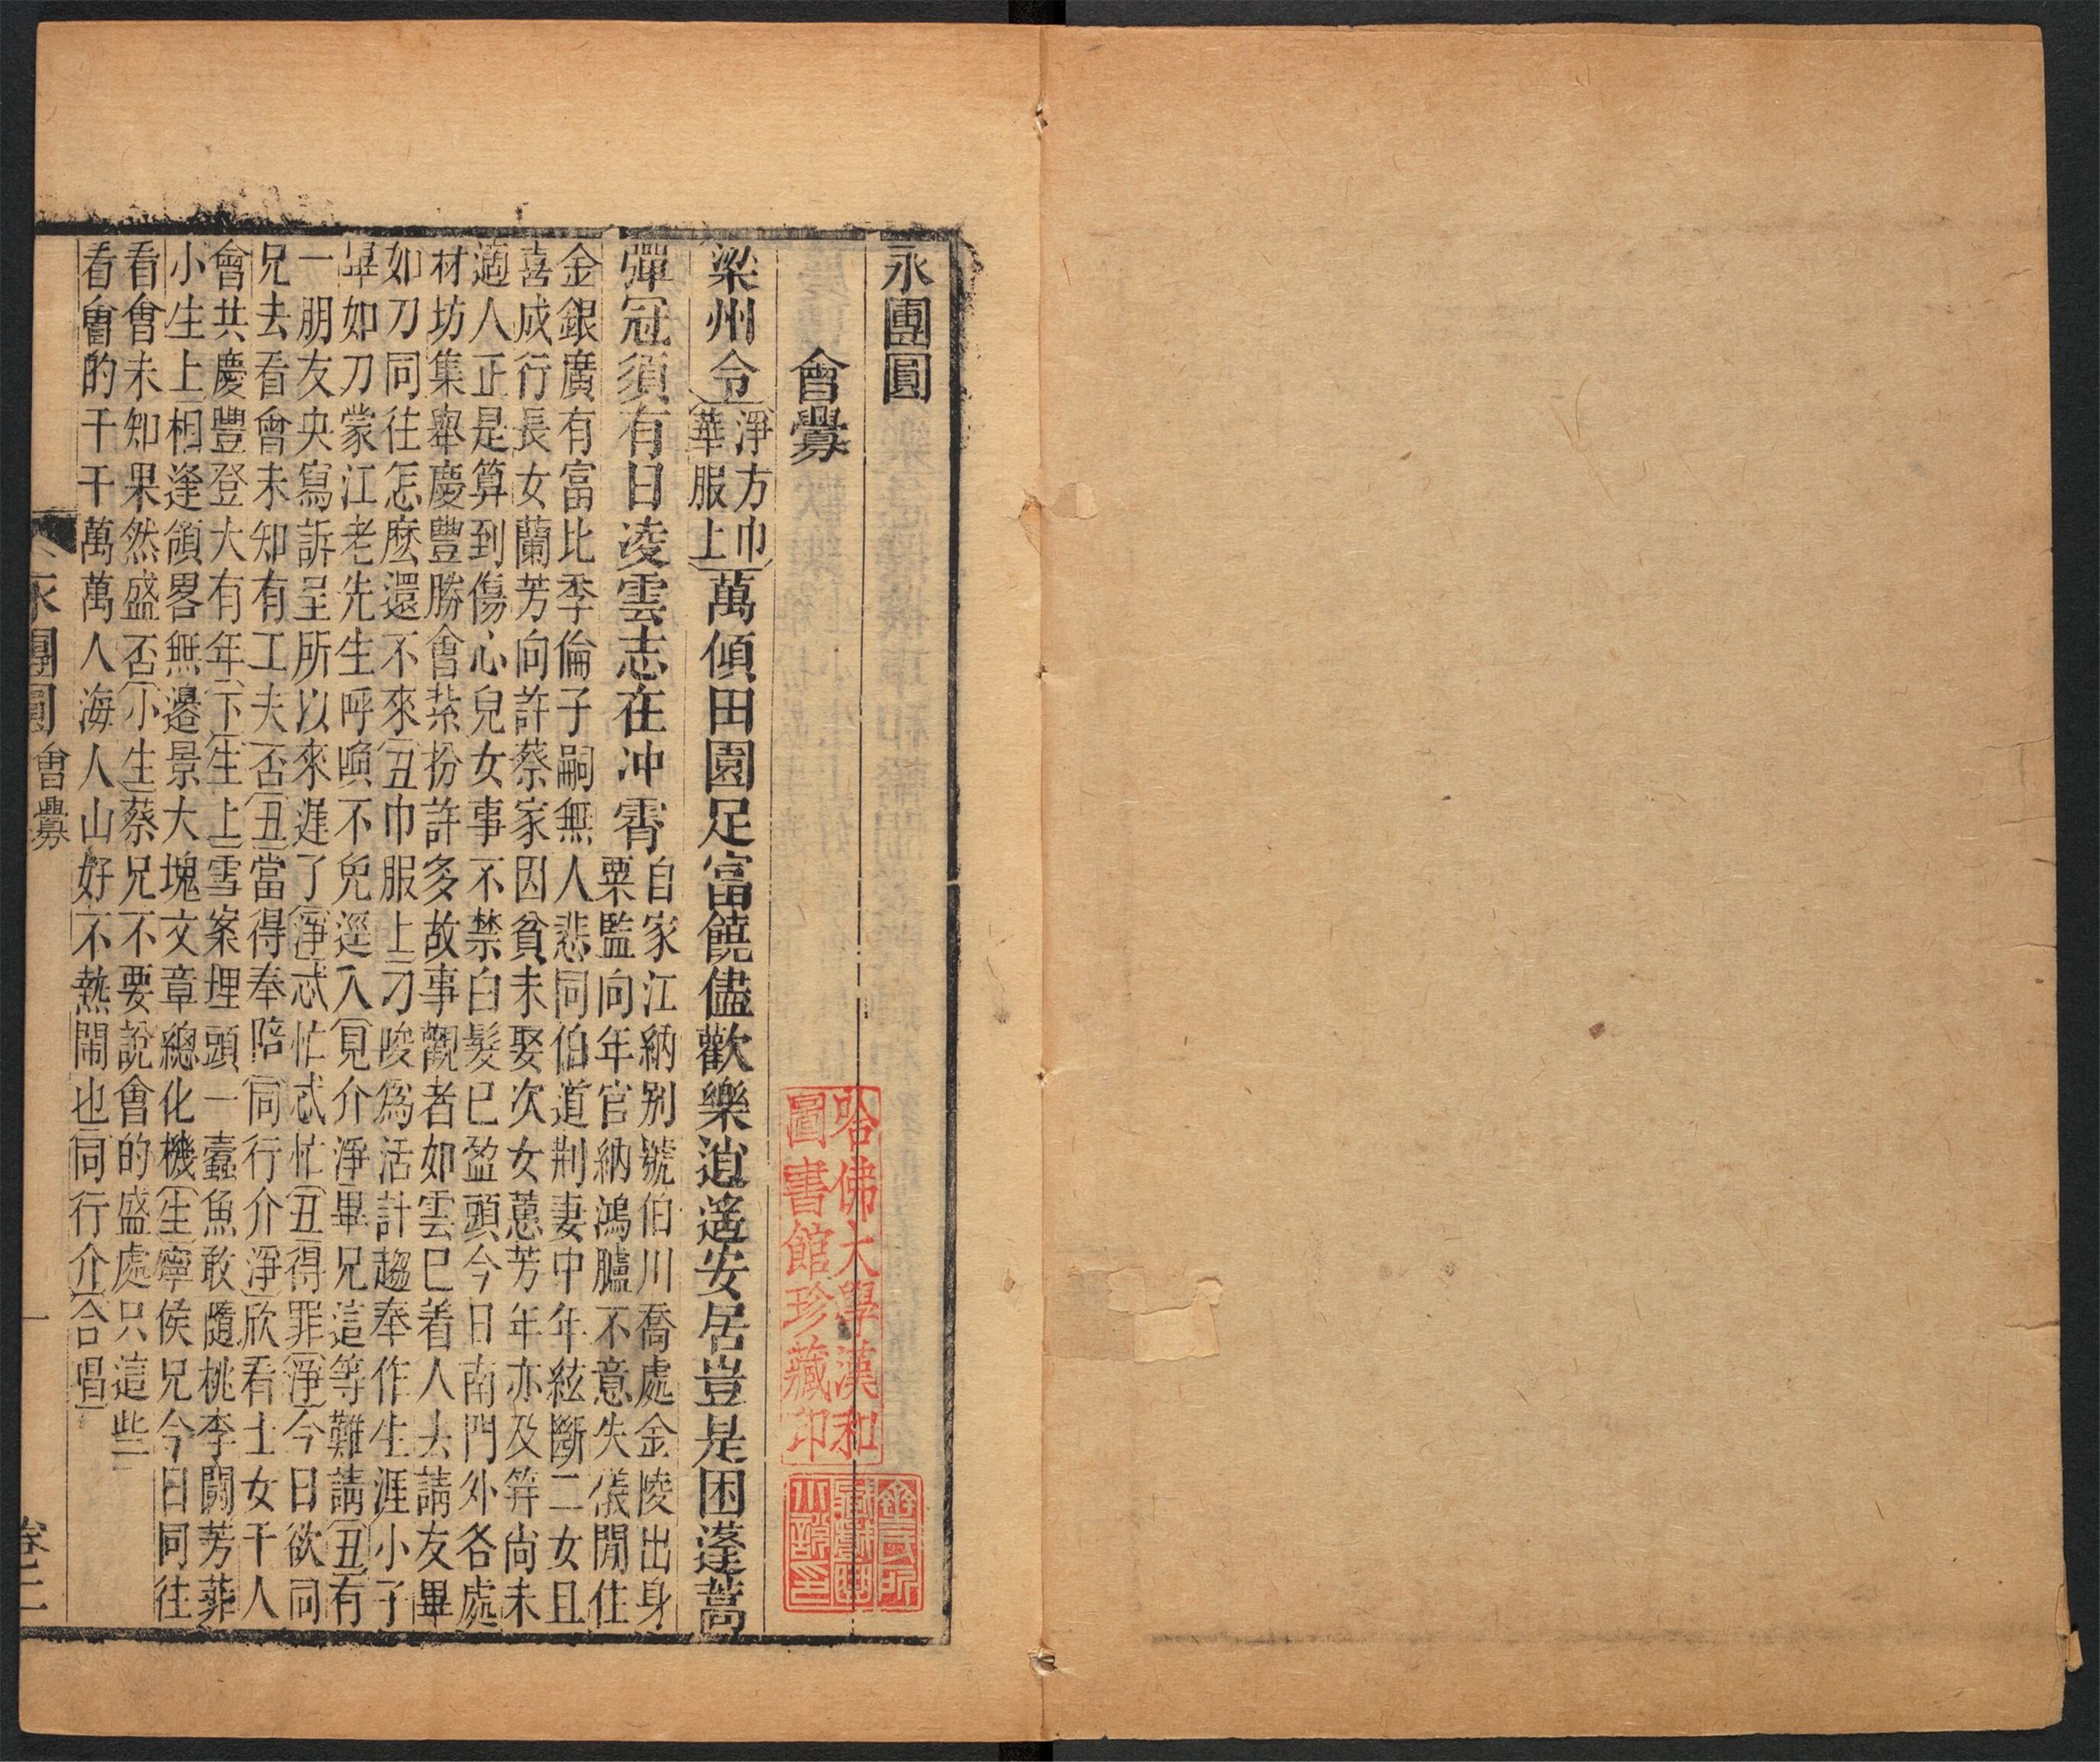 永團圓
會釁
梁州令
淨方巾
華服上
萬傾田園足富饒儘歡樂逍遙安居豈是困蓬蒿
彈冠須有日凌雲志在冲霄
自家江納別號伯川喬處金陵出身
粟監向年官納鴻臚不意失儀閒住
金銀廣有富比季倫子嗣無人悲同伯道荆妻中年絃斷二女且
喜成行長女蘭芳向許蔡家因貧未娶次女蕙芳年亦及笄尚未
適人正是算到傷心兒女事不禁白髮已盈頭今日南門外各處
材坊集舉慶豐勝會紥扮許多故事觀者如雲已着人去請友畢
如刀同往怎麽還不來丑巾服上刁唆為活計趨奉作生涯小子
畢如刀蒙江老先生呼喚不免逕入見介淨畢兄這等難請丑有
一朋友央寫訴呈所以來遲了淨忒忙忒忙丑得罪淨今日欲同
兄去看會未知有工夫否丑當得奉陪同行介淨欣看士女千人
會共慶豐登大有年下生上雪案埋頭一蠹魚敢隨桃李鬬芳菲
小生上相逢領畧無邊景大塊文章總化機生寧侯兄今日同往
看會未知果然盛否小生蔡兄不要說會的盛處只這些
看會的千千萬萬人海人山好不熱鬧也同行介合唱
永團圓
會釁
一
卷二
哈佛大學漢和
圖書館珍藏印